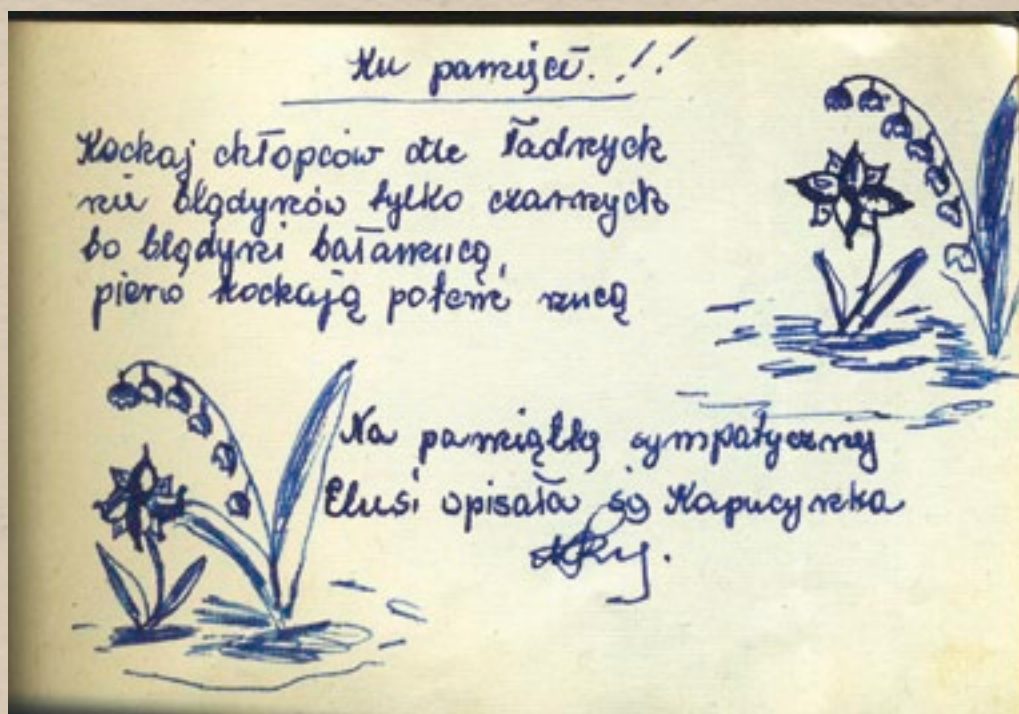 Ku pamięci.!!
Kochaj chłopców ale ładnych
nie blądynów tylko czarnych
bo blądyni bałamucą,
pierw kochają potem rzucą
Na pamiątkę sympatycznej
Elusi wpisała się Kapucynka